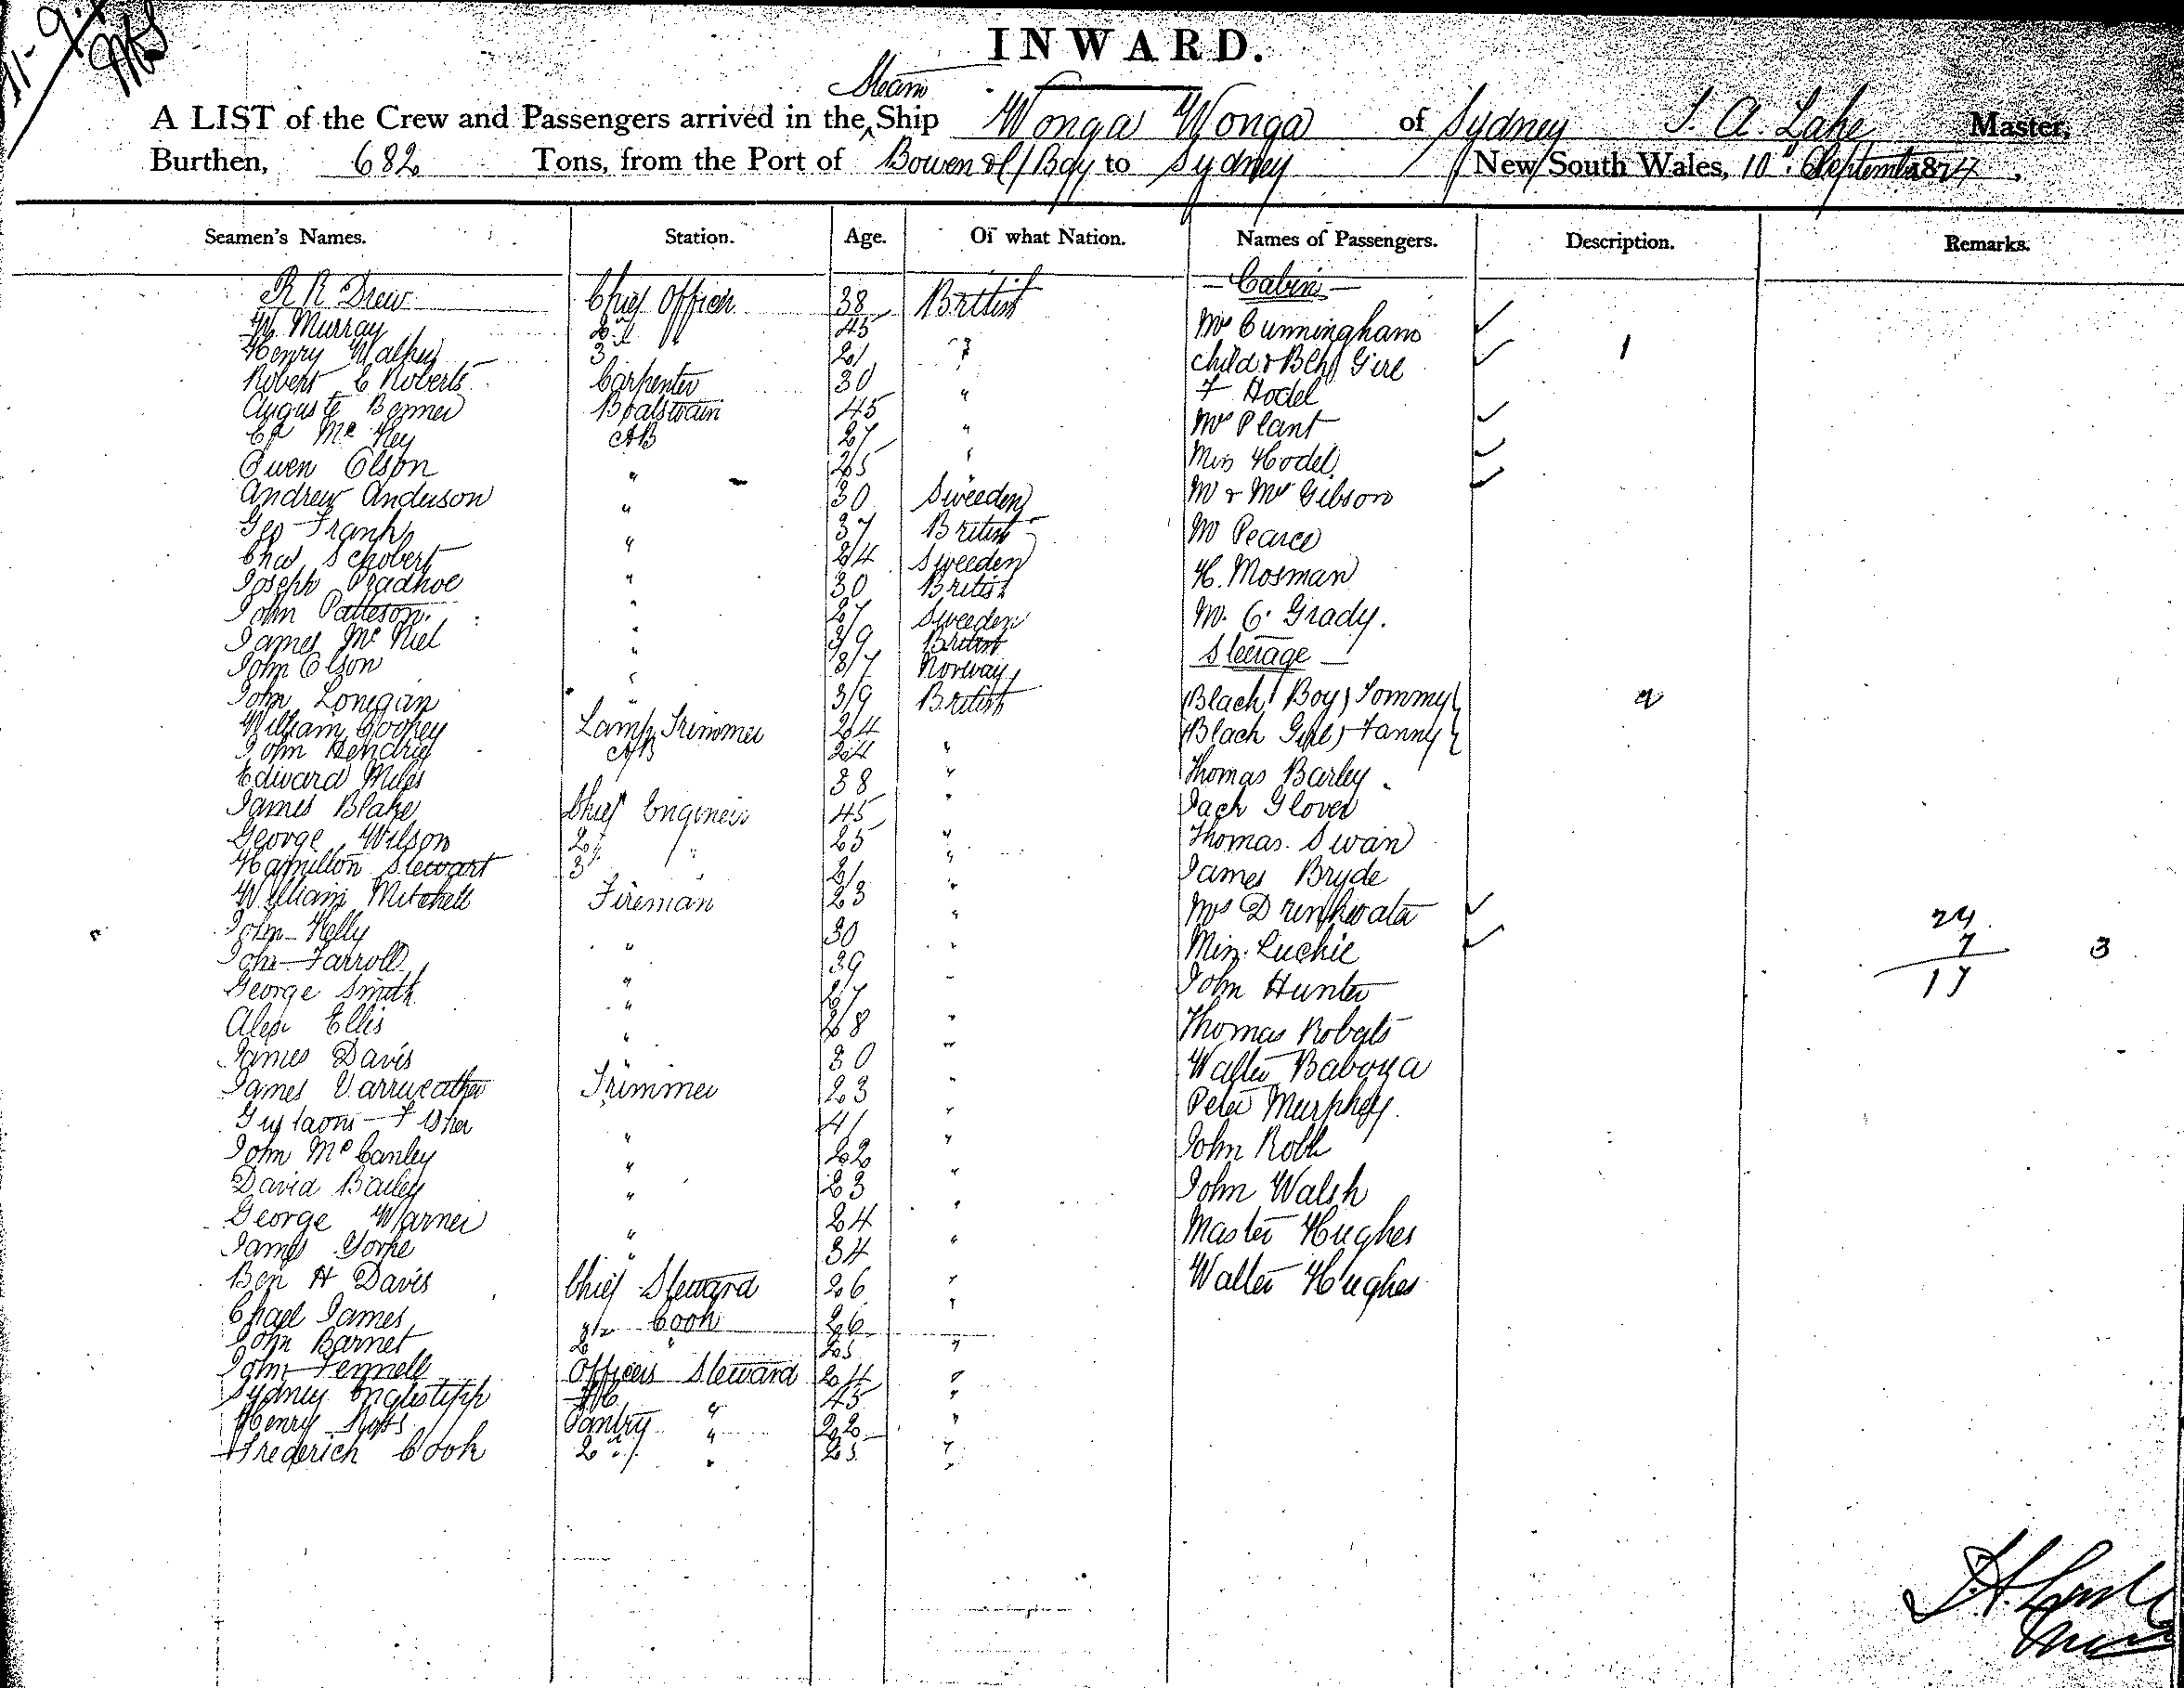 INWARD.
Steam
A LIST of the Crew and Passengers arrived in the Ship Wonga Wonga of Sydney Master,
Burthen, 682 Tons, from the Port of Bowen to Sydney New South Wales, 10 September 1874
Seamen's Names. Station. Age. Of what Nation. Names of Passengers. Description. Remarks.
R R Drew Chief Officer 38 British — Cabin —
W Murray 2d " 45 Mrs Cunningham
Henry Walker 3 21 " Child & Girl 1
Robert C Roberts Carpenter 30 " F Hodel
Auguste Boatswain 45 " Mrs Plant
Mc Key AB 27 " Miss Hodel
Owen Olson " 25 Mr & Mrs Gibson
Andrew Anderson " 30 Sweeden Mr Pearce
Geo Frank " 37 British H. Mosman
Chas Schobert " 24 Sweeden M. C. Grady.
Joseph " 30 British Steerage —
John Patteson. " 27 Sweeden Black Boy Tommy
James Mc Niel " 39 British Black Girl Fanny
John Olson " 37 Norway Thomas Barley
John Lonegan " 39 British Jack Glover
William Cookey Lamp Trimmer 24 Thomas Swan
John Hendrie AB 24 " James Bryde
Edward Miles 38 " Mrs Drinkwater
James Blake Chief Engineer 45 " Miss Luckie
George Wilson 2d " 25 " John Hunter
Hamilton Stewart 3 21 " Thomas Roberts
William Mitchell Fireman 23 " Walter
John Kelly " 30 " Peter Murphey.
John Farroll " 39 " John Robb
George Smith " 27 " John Walsh
Alex Ellis " 28 " Master Hughes
James Davis " 30 " Walter Hughes
James Trimmer 23 "
41 "
John Mc Canley " 22 "
David Bailey " 23 "
George Warner " 24 "
James Yorke " 34 "
Ben H Davis Chief Steward 26 "
James Cook 26 "
John Barnet 2 " 25 "
John Fennell Officers Steward 24 "
Sydney 45 "
Henry Pantry " 22 "
Frederick Cook 2d " 25 "
24
7 3
17